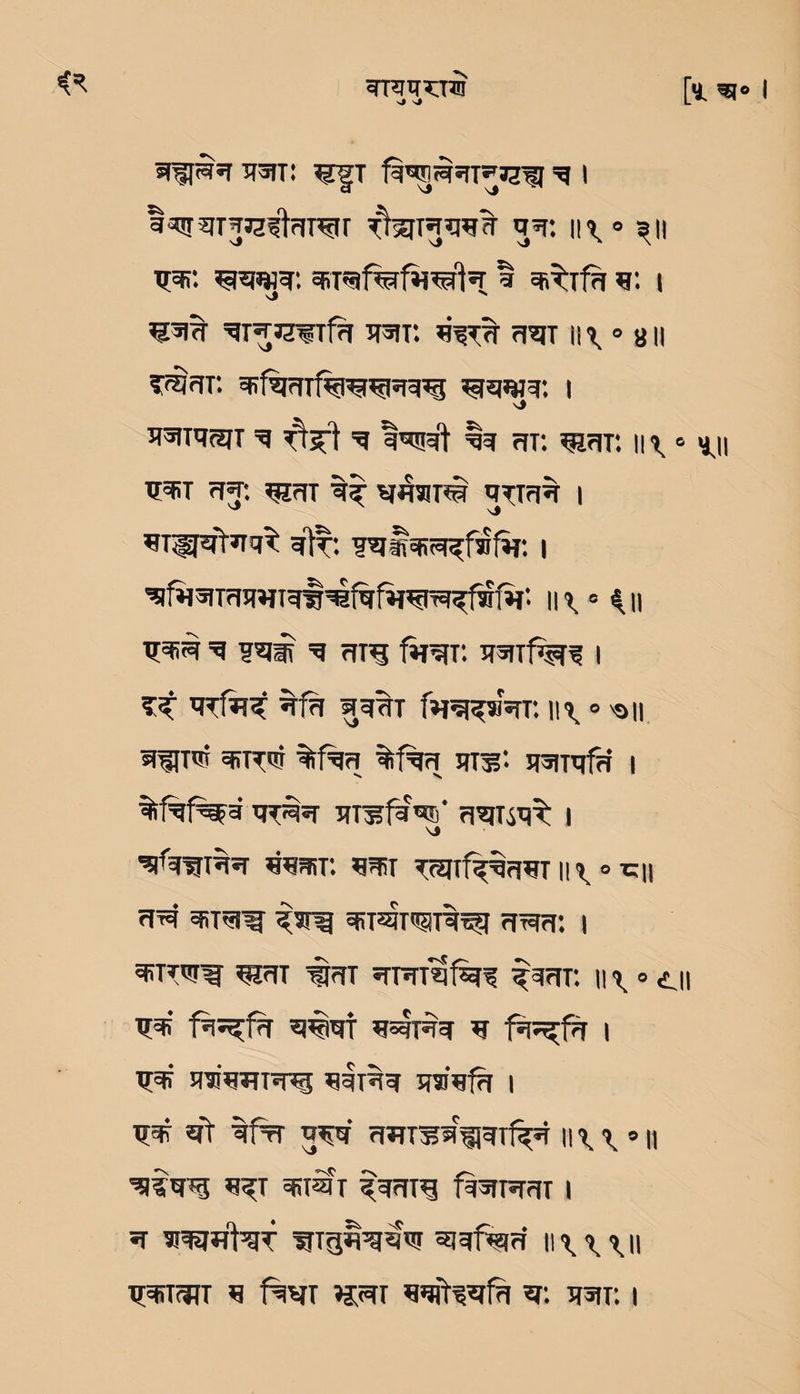 ६२ वायुपुराणे [५ अ० ।
ब्रह्मत्वेन प्रजाः सृष्ट्वा विष्णुत्वेनानुगृह्य च ।
वैष्णव्यानुगृहीतास्ता रौद्र्यानुग्रसते पुनः ॥१०३॥
एकः स्वयम्भुवः कालस्त्रिभिस्त्रीन् वै करोति सः ।
सृजते चानुगृह्णाति प्रजाः संहरते तथा ॥१०४॥
इत्येताः कथितास्तिस्रस्तनवस्तु स्वयम्भुवः ।
प्रजापत्या च रौद्री च वैष्णवी चैव ताः स्मृताः ॥१०५॥
एका तनुः स्मृता वेदे धर्मशास्त्रे पुरातने ।
सांख्ययोगपरैर्वीरैः पृथक्त्वैकत्वदर्शिभिः ।
अभिजातप्रभावज्ञैर्ऋषिभिस्तत्त्वदर्शिभिः ॥१०६॥
एकत्वे च पृथक्त्वे च तासु भिन्नाः प्रजास्विह ।
इदं परमिदं नेति ब्रुवते भिन्नदर्शनाः ॥१०७॥
ब्रह्माणं कारणं केचित् केचित् प्राहुः प्रजापतिं ।
केचिच्छिवं परत्वेन प्राहुर्विष्णुं तथाऽपरे ।
अविज्ञानेन संसक्ताः सक्ता रत्यादिचेतसा ॥१०८॥
तत्त्वं कालञ्च देशञ्च कार्याण्यावेक्ष्य तत्त्वतः ।
कारणञ्च स्मृता ह्येता नानार्थेष्विह देवताः ॥१०९॥
एकं निन्दति यस्तेषां सर्वानेव स निन्दति ।
एकं प्रशंसमानस्तु सर्वानेव प्रशंसति ।
एकं यो वेत्ति पुरुषं तमाहुर्ब्रह्मवादिनं ॥११०॥
अद्वेषस्तु सदा कार्यो देवतासु विजानता ।
न शक्यमीश्वरं ज्ञातुमैश्वर्येण व्यवस्थितं ॥१११॥
एकात्मा स त्रिधा भूत्वा सम्मोहयति यः प्रजाः ।